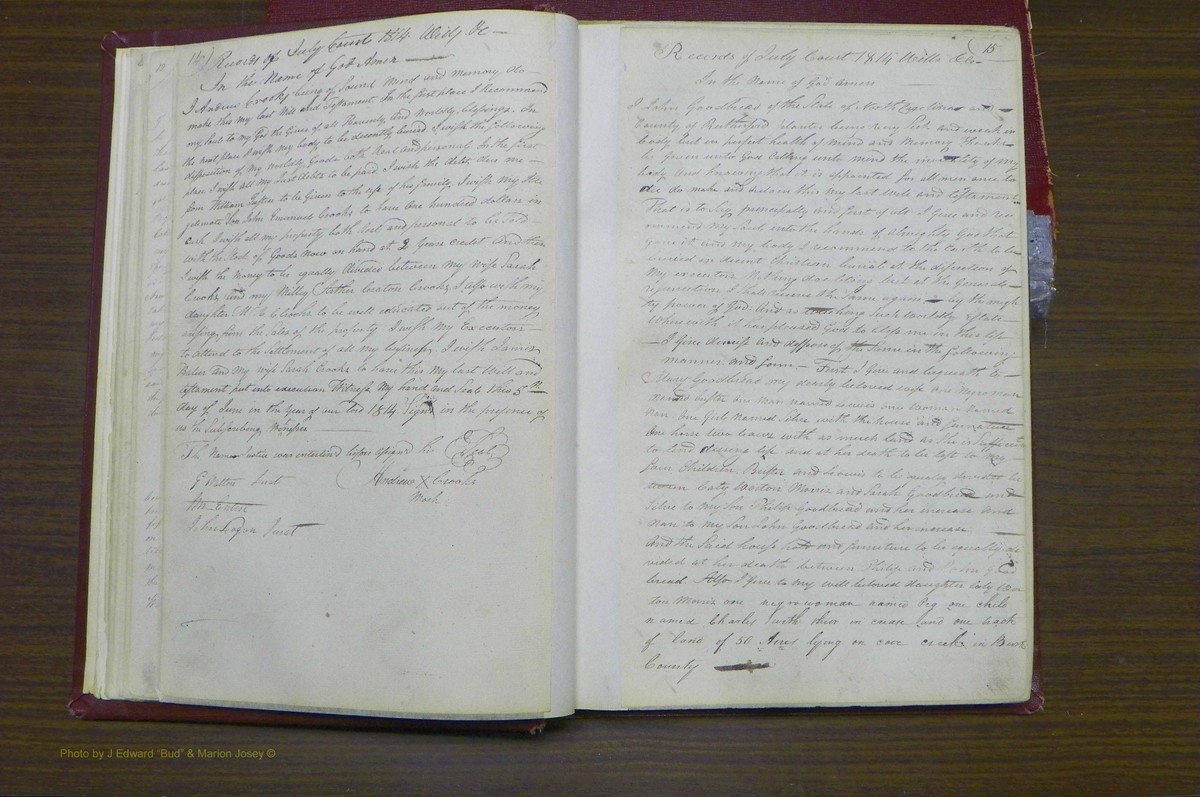 14) Records of July Court 1814 Wills &c
In the Name of God Amen
I Andrew Crooks being of Sound Mind and memory do
make this my last Will and Testament. In the first place I Recommend
my Soul to my God the Giver of all Heavenly and Worldly blessings. In
the next place I wish my body to be decently buried I wish the following
disposition of my Worldly Goods both Real and personal. In the first
place I wish all my Just debts to be paid I wish the debts due me
from William to be Given to the use of his family, I wish my Ille-
gitimate Son John Emanuel Crooks to have One hundred dollars in
Cash I wish all my property both Real and personal to be Sold
with the Stock of Goods Now on hand at 2 Years credit and then
I wish the Money to be equally divided between my Wife Sarah
Crooks and my Arthur Crooks I also wish my
daughter C Crooks to be well educated out of the money
arising from the Sales of the property. I wish my Executors
to attend to the Settlement of all my business. I wish James
and My wife Sarah Crooks to have this My last Will and
testament put into execution Witness My hand and Seal this 5th
day of June in the Year of our Lord 1814 Signd in the presence of
us the Subscribing Witnesses
The Name was enterlined before Signed his Seal
G Walton Jurat Andrew X Crooks
Mark
John Logan Jurat
Records of July Court 1814 Wills &c 15
In the Name of God Amen
I John Goodbread of the State of North Carolina and
County of Rutherford planter being very Sick and weak in
body but in perfect health of mind and Memory thanks
be given unto God Calling unto mind the mortality of my
body and Knowing that it is appointed for all men once to
die do make and ordain this my last will and testament
That is to Say principally and first of all I Give and rec-
ommend my Soul into the hands of almighty God that
gave it and my body I recommend to the Earth to be
buried in decent Christian burial at the discretion of
my executors Nothing doubting but at the General
resurrection I Shall receive the Same again by the migh-
ty power of God. And as touching Such worldly estate
where with it has pleased God to bless me in this life
I Give demise and dispose of the Same in the following
manner and form. First I give and bequeath to
Mary Goodbread my dearly beloved wife one Negro man
named Buster One Man named Lewis one Woman Named
Nan One Girl Named Silve with the house and furniture
One horse two cows with as much land as She is Sufficient
to tend during life and at her death to be left to my
four Children. Buster and Lewis to be equally devided be
tween Caty Weston Morris and Sarah Goodbread and
Silve to my Son Philip Goodbread and her increase and
Nan to my Son John Goodbread and her increase
And the Said house and furniture to be equally de
vided at her death between Philip and John Good
bread. Also I Give to my well beloved daughter Caty Wes
ton Morris one negro woman named Peg one chile
named Charles with their in crease and one track
of land of 50 Acres lying on cove creek in Burk
County
Photo by J Edward "Bud" & Marion Josey ©